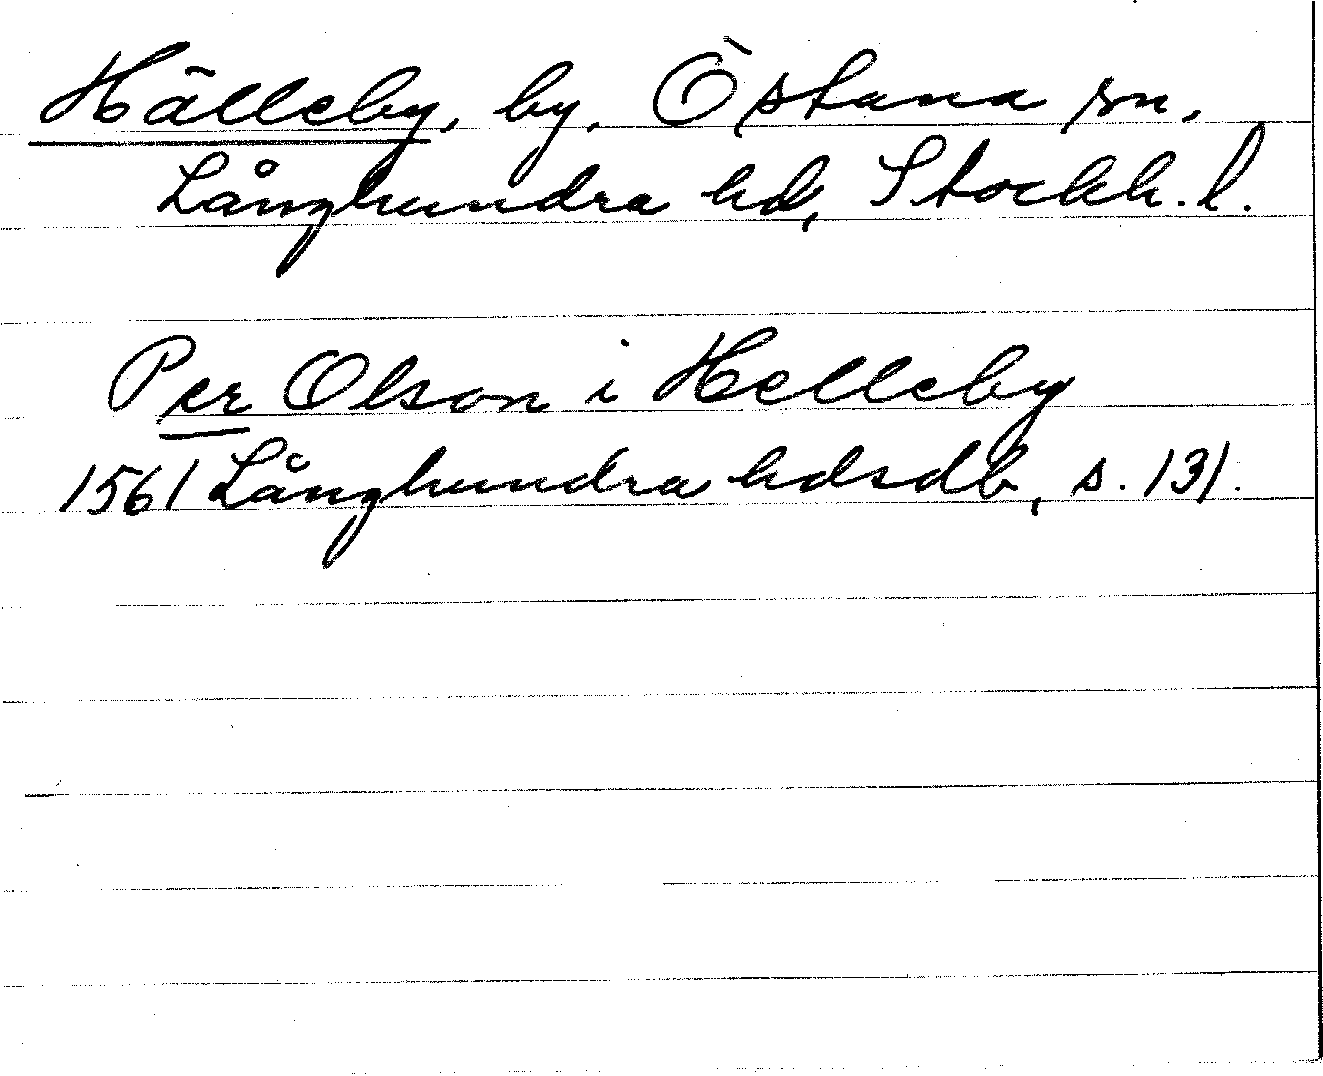 Hälleby, by, Östuna sn,
Långhundra hd, Stockh. l.
Per Olson i Helleby
1561 Långhundra hdsdb, s. 131.